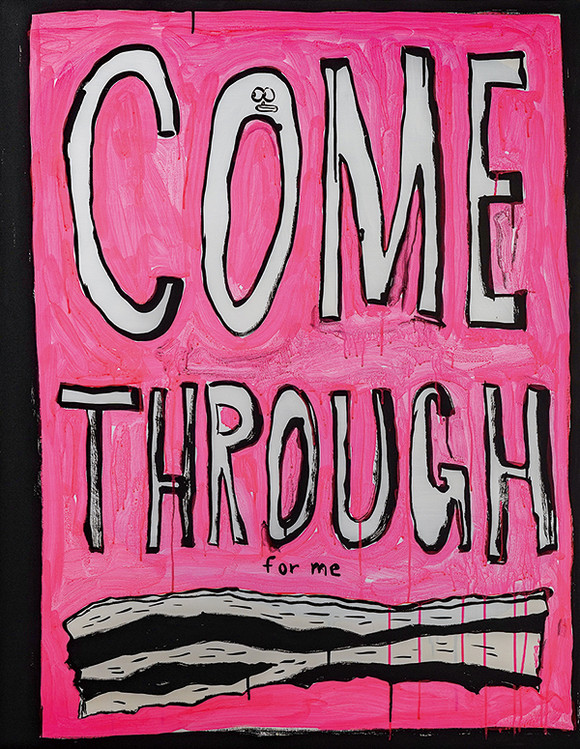 COME
THROUGH
for me